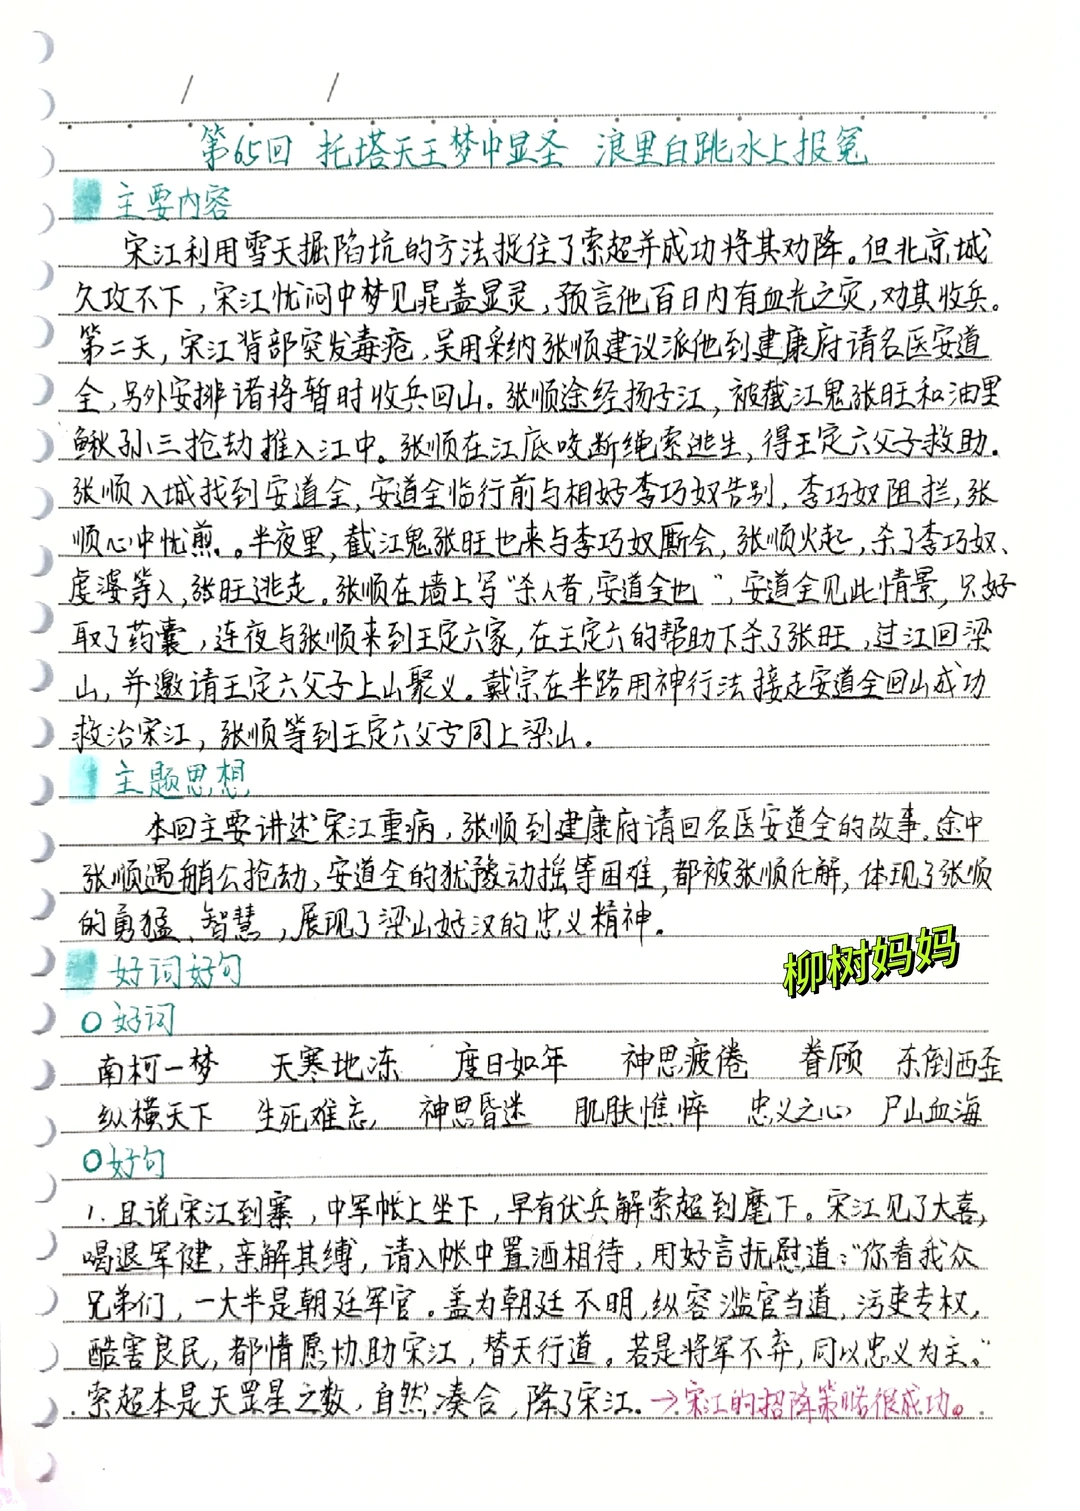 第65回 托塔天王梦中显圣 浪里白跳水上报冤
主要内容
宋江利用雪天掘陷坑的方法捉住了索超并成功将其劝降。但北京城
久攻不下，宋江忧闷中梦见晁盖显灵，预言他百日内有血光之灾，劝其收兵。
第二天，宋江背部突发毒疮，吴用采纳张顺建议派他到建康府请名医安道
全，另外安排诸将暂时收兵回山。张顺途经扬子江，被截江鬼张旺和油里
鳅孙三抢劫推入江中。张顺在江底咬断绳索逃生，得王定六父子救助。
张顺入城找到安道全，安道全临行前与相好李巧奴告别，李巧奴阻拦，张
顺心中忧煎。半夜里，截江鬼张旺也来与李巧奴厮会，张顺火起，杀了李巧奴、
虔婆等人，张旺逃走。张顺在墙上写“杀人者，安道全也”，安道全见此情景，只好
取了药囊，连夜与张顺来到王定六家，在王定六的帮助下杀了张旺，过江回梁
山，并邀请王定六父子上山聚义。戴宗在半路用神行法接走安道全回山成功
救治宋江，张顺等到王定六父子同上梁山。
主题思想
本回主要讲述宋江重病，张顺到建康府请回名医安道全的故事。途中
张顺遇艄公抢劫、安道全的犹豫动摇等困难，都被张顺化解，体现了张顺
的勇猛、智慧，展现了梁山好汉的忠义精神。
柳树妈妈
好词好句
○好词
南柯一梦 天寒地冻 度日如年 神思疲倦 眷顾 东倒西歪
纵横天下 生死难忘 神思昏迷 肌肤憔悴 忠义之心 尸山血海
○好句
1. 且说宋江到寨，中军帐上坐下，早有伏兵解索超到麾下。宋江见了大喜，
喝退军健，亲解其缚，请入帐中置酒相待，用好言抚慰道：“你看我众
兄弟们，一大半是朝廷军官。盖为朝廷不明，纵容滥官当道，污吏专权，
酷害良民，都情愿协助宋江，替天行道。若是将军不弃，同以忠义为主。”
索超本是天罡星之数，自然凑合，降了宋江。→宋江的招降策略很成功。